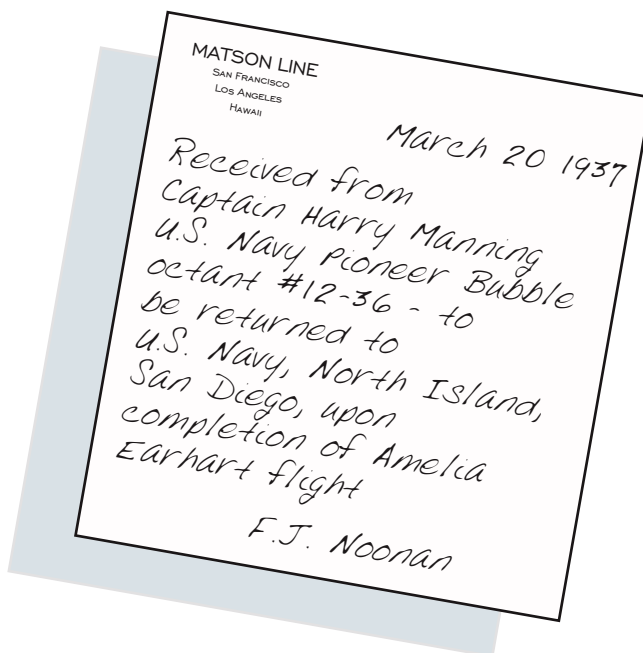 MATSON LINE
SAN FRANCISCO
LOS ANGELES
HAWAII
March 20 1937
Received from
Captain Harry Manning
U.S. Navy Pioneer Bubble
octant #12-36 - to
be returned to
U.S. Navy, North Island,
San Diego, upon
completion of Amelia
Earhart flight
F.J. Noonan